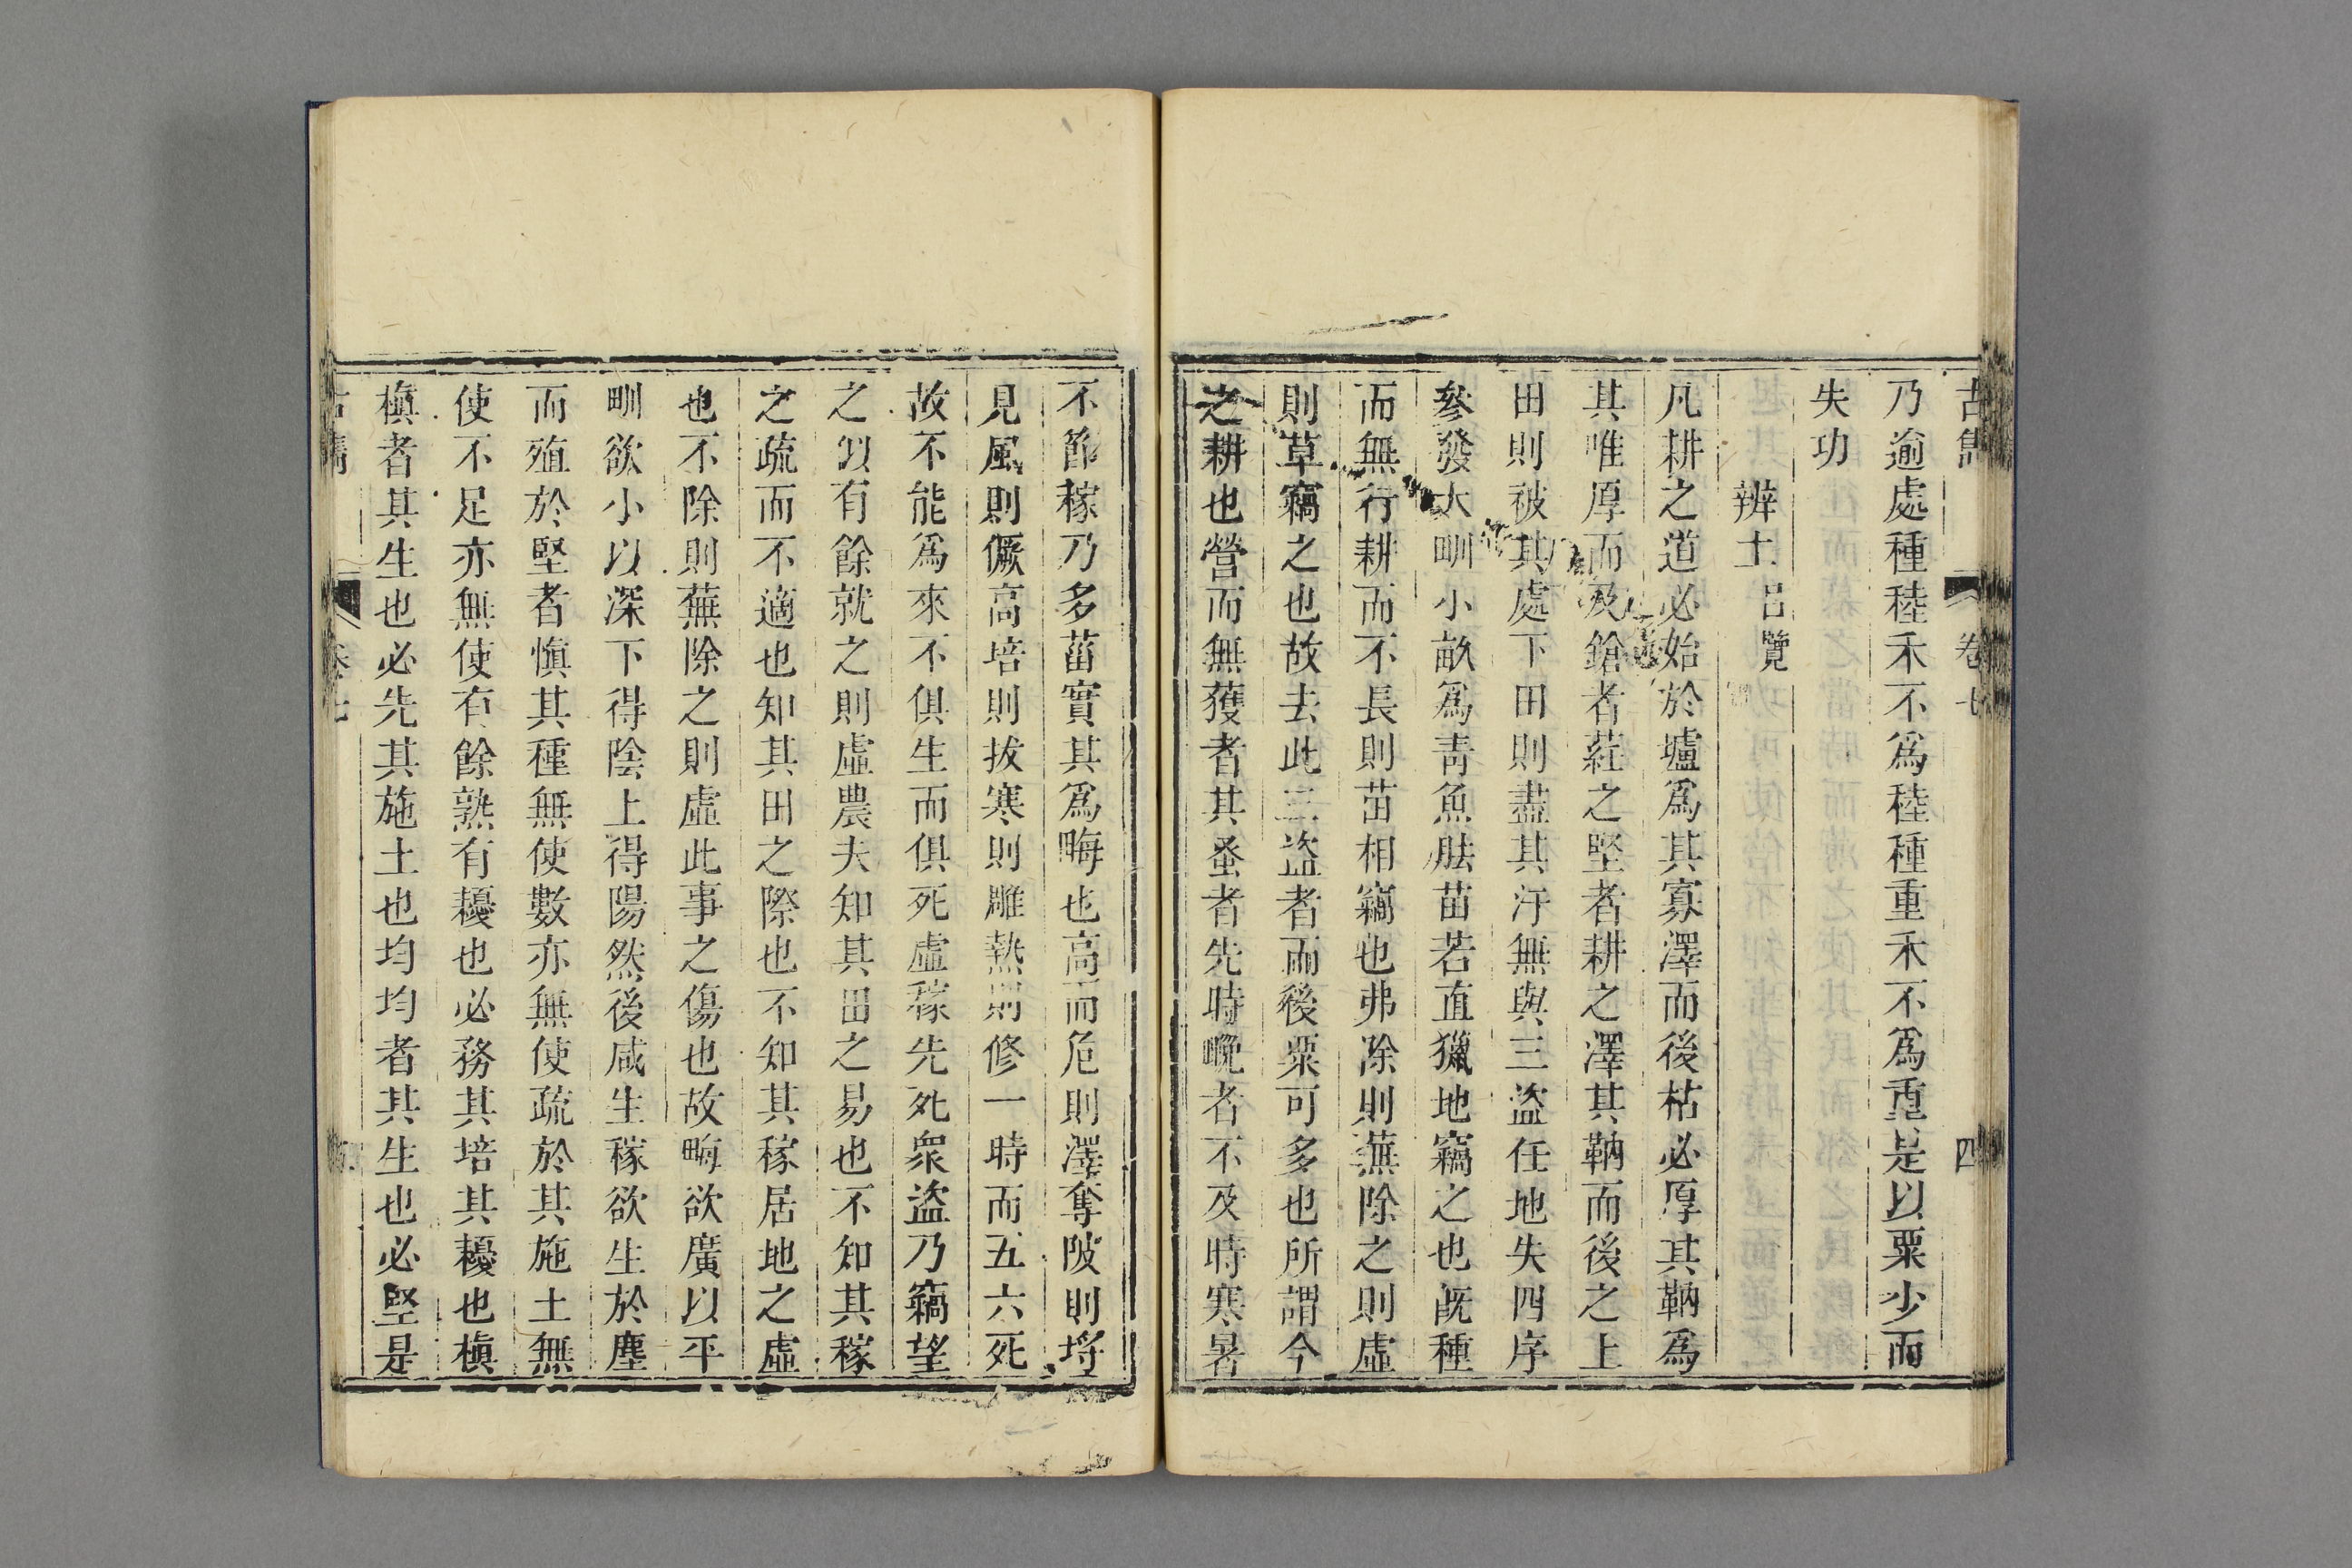 古雋 卷七 四
乃逾處種稑禾不爲稑種重禾不爲重是以粟少而
失功
辨土 呂覽
凡耕之道必始於壚爲其寡澤而後枯必厚其靹爲
其唯厚而及鎗者莊之堅者耕之澤其靹而後之上
田則被其處下田則盡其汙無與三盜任地失四序
參發大甽小畝爲靑魚胠苗若直獵地竊之也旣種
而無行耕而不長則苗相竊也弗除則蕪除之則虛
則草竊之也故去此三盜者而後粟可多也所謂今
之耕也營而無獲者其蚤者先時晚者不及時寒暑
不節稼乃多菑實其爲晦也高而危則澤奪陂則埒
見風則僞高培則拔寒則雕熱則修一時而五六死
故不能爲來不俱生而俱死虛稼先死衆盜乃竊望
之以有餘就之則虛農夫知其田之易也不知其稼
之疏而不適也知其田之際也不知其稼居地之虛
也不除則蕪除之則虛此事之傷也故畮欲廣以平
甽欲小以深下得陰上得陽然後咸生稼欲生於塵
而殖於堅者愼其種無使數亦無使疏於其施土無
使不足亦無使有餘熟有耰也必務其培其耰也槙
槙者其生也必先其施土也均均者其生也必堅是